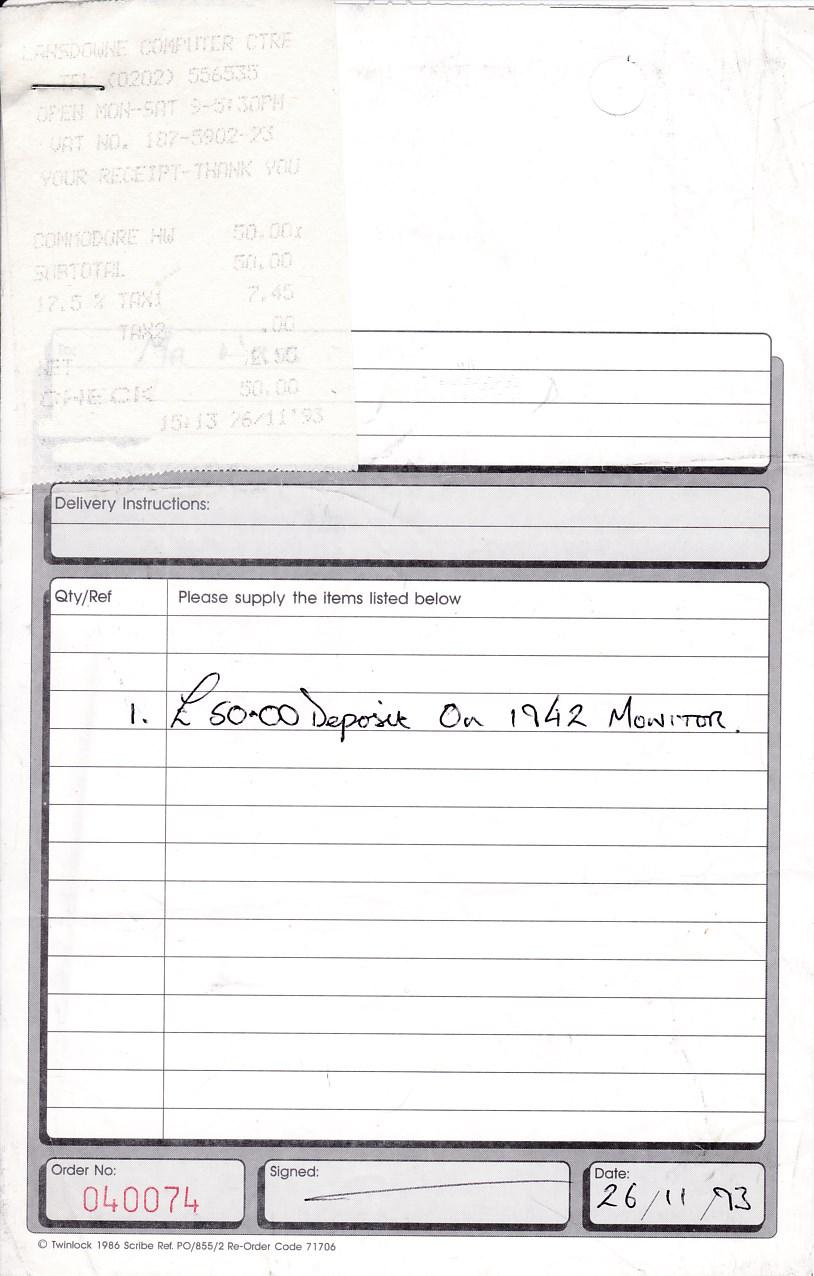 LANSDOWNE COMPUTER CTRE
TEL (0202) 556535
OPEN MON-SAT 9-5:30PM
VAT NO. 187-5902-23
YOUR RECEIPT-THANK YOU
COMMODORE HW 50.00x
SUBTOTAL 50.00
17.5 % TAX1 7.45
TAX2 .00
NET
CHECK 50.00
15:13 26/11'93
Delivery Instructions:
Qty/Ref Please supply the items listed below
1. £50.00 Deposit On 1942 MONITOR.
Order No: Signed: Date:
040074 26/11/93
© Twinlock 1986 Scribe Ref. PO/855/2 Re-Order Code 71706